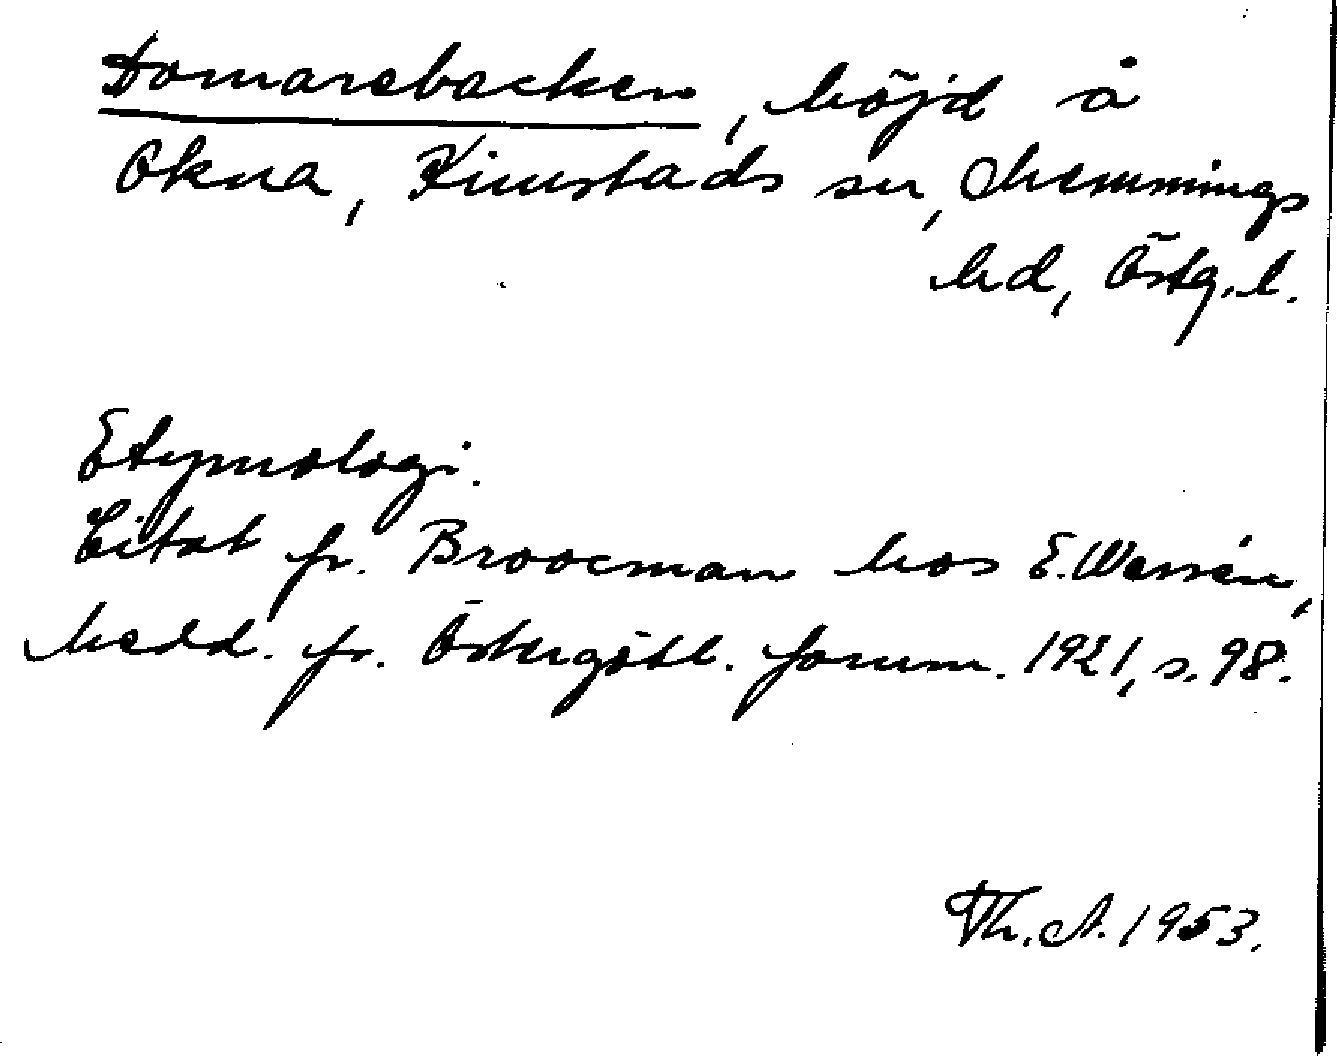 Domarebacken, höjd å
Okna, Kimstads sn, Memmings
hd, Östg. l.
Etymologi.
Citat fr. Broocman hos E. Wessén,
Medd. fr. Östergötl. fornm. 1921, s. 98.
Th. A. 1953.